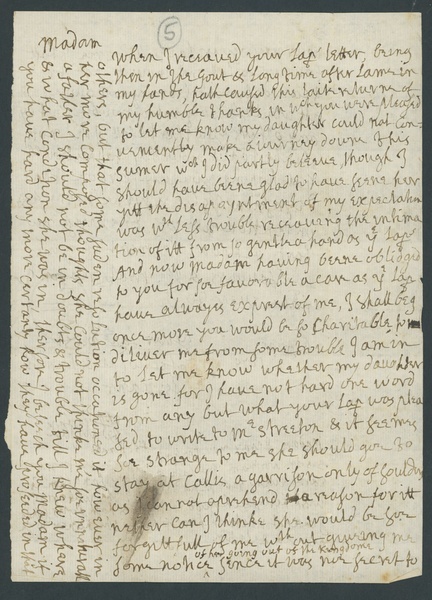 5
Madam
When I receaved your Lap letter, being
then in the Gout & Long time after Lame in
my hands, hath caused this late returne of
my humble thanks, in wch you were pleased
to let me know my daughter could not con-
veniently make a Journey downe this
sumer wch I did partly beleeve, though I
should have beene glad to have seene her
yitt the disapoyntment of my expectation
was wth less trouble, receaving the intima
tion of itt from so gentle a hand as yr Lap
And now Madam having beene obliged
to you for soe favorable a care as yr Lap
have always exprest of me, I shall beg
once more you would be so Charitable to
deliever me from some trouble I am in
to let me know whether my daughter
is gone for I have not hard one word
from any but what your Lap was plea
sed to write to Mr Streeton & it seemes
soe strange to me she should goe to
stay at Callis a garrison only of Souldirs
as I cannot aprehend a reason for itt
nether can I thinke she would be soe
forgittfull of me wthout giveing me
some notice of her going out of the Kingdome since it was noe secret to
others, but that some suden resolution occationed it however in
her more composed thoughts she could not thinke me soe unnaturall
a father I should not be in doubts & trouble till I knew where
& what Condition she was in, therfor I beseech you Madam if
you have hard any more certanly how they have proceeded in itt